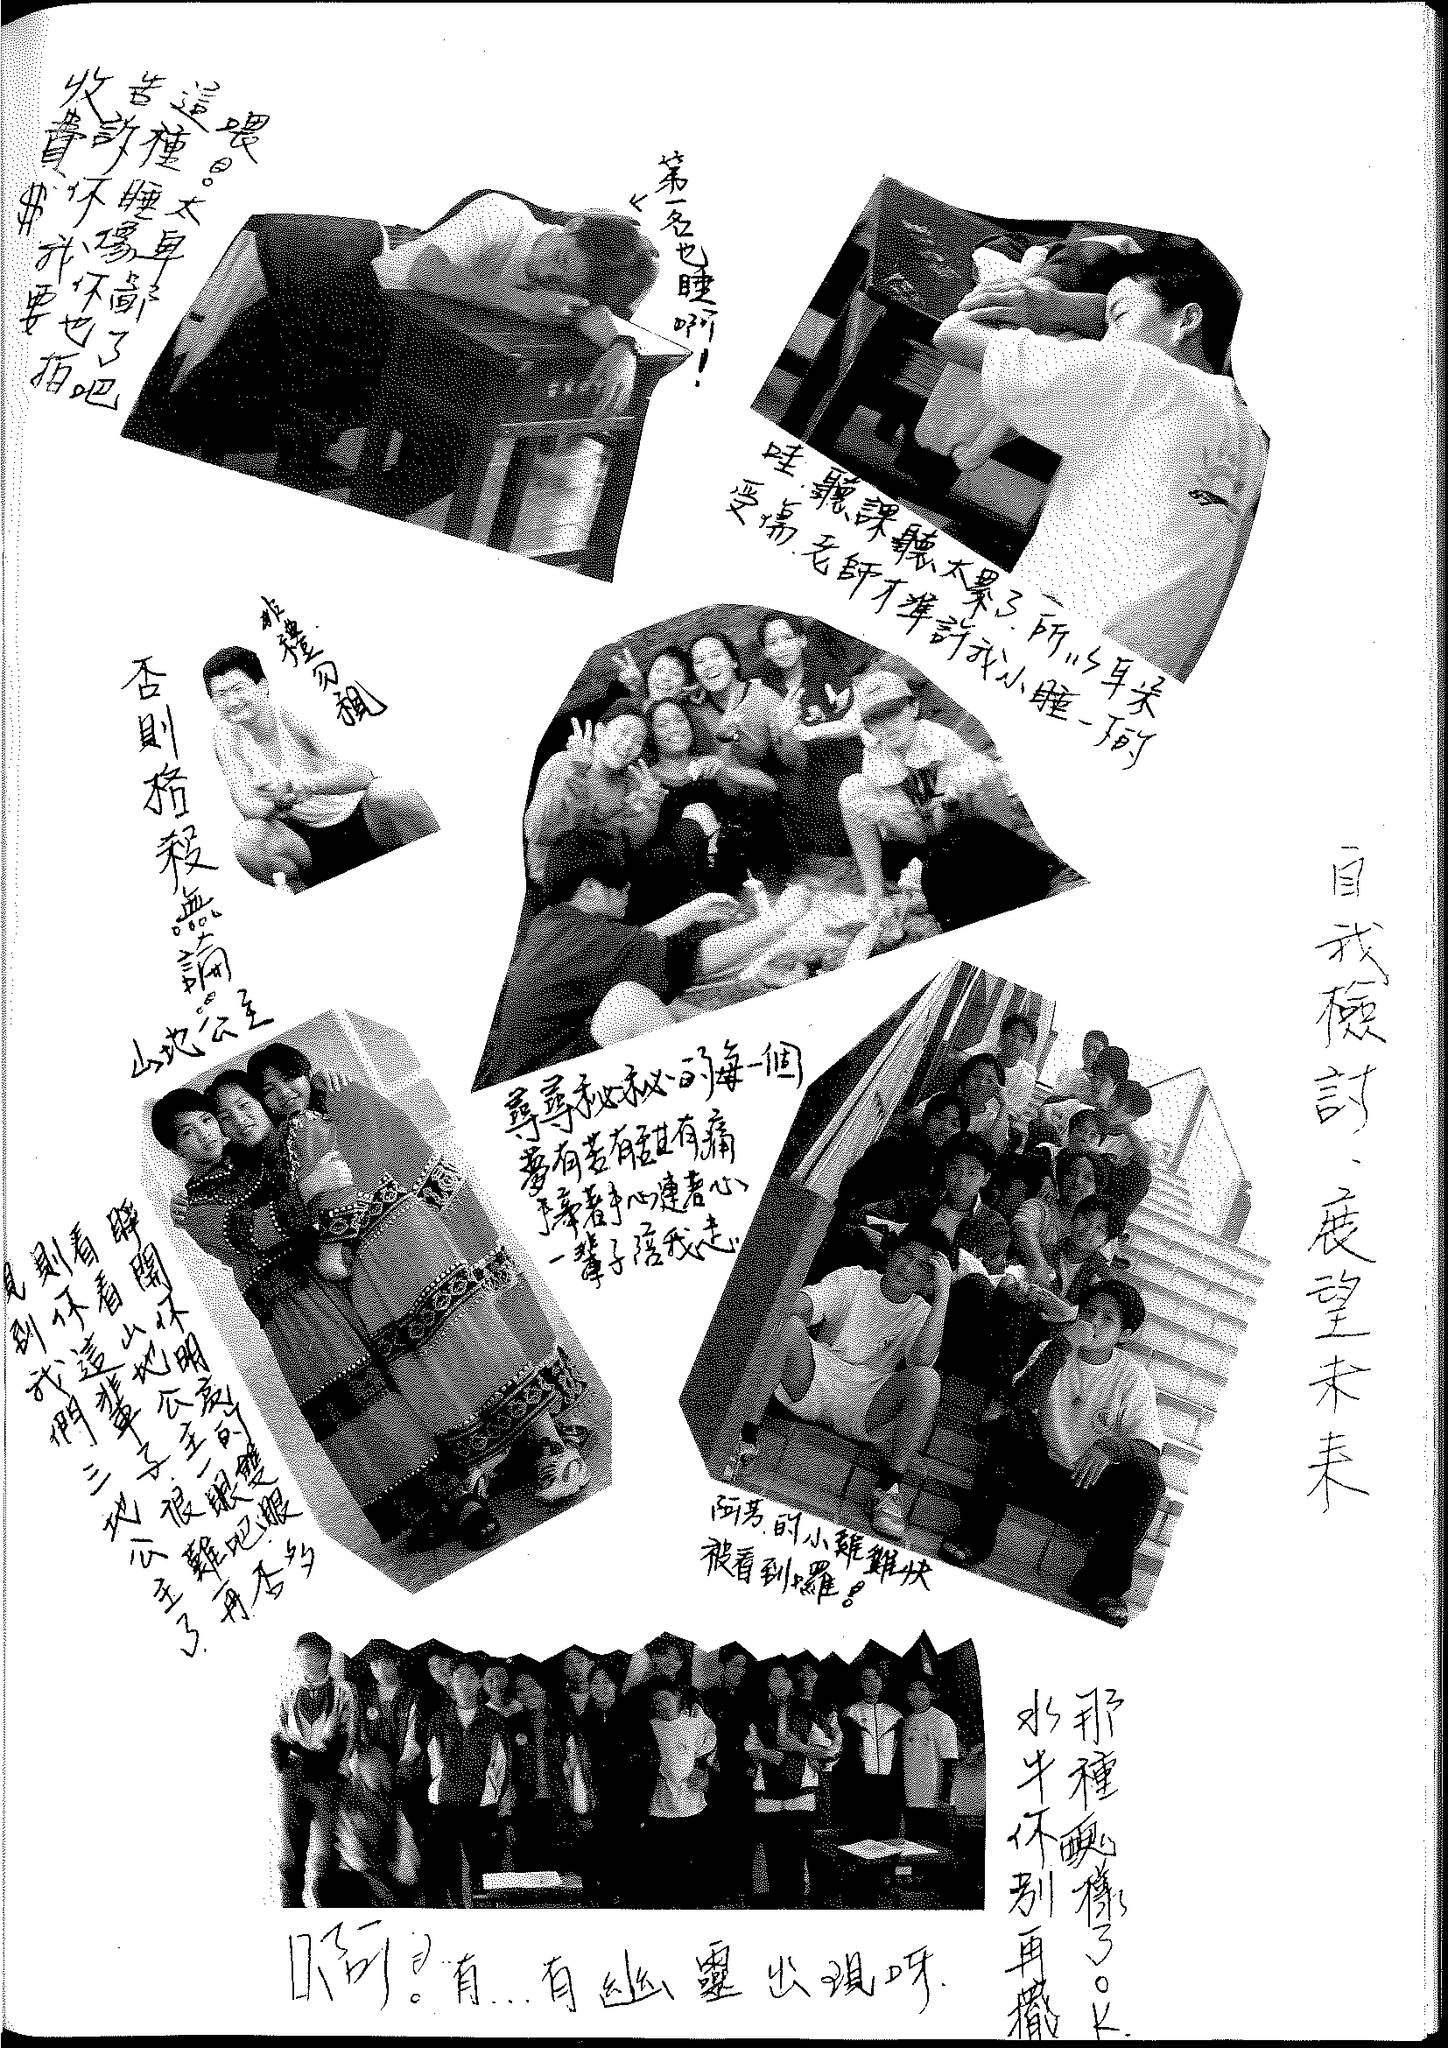 喂!太卑鄙了吧
這種睡像你也拍
告訴你我要
收費$
第一名也睡啊!
哇.聽課聽太累了.所以耳朵
受傷.老師才準許我小睡一下的
非禮勿視
否則格殺無論!
自我檢討.展望未來
山地公主
尋尋秘秘的每一個
夢有苦有甜有痛
手牽著手心連著心
一輩子陪我走
睜開你明亮的雙眼多
看看山地公主一眼吧.否
則你這輩子.很難再
見到我們三地公主了.
阿芳.的小雞雞快
被看到囉!
水牛你別再擺
那種醜樣了OK.
啊?有...有幽靈出現呀.